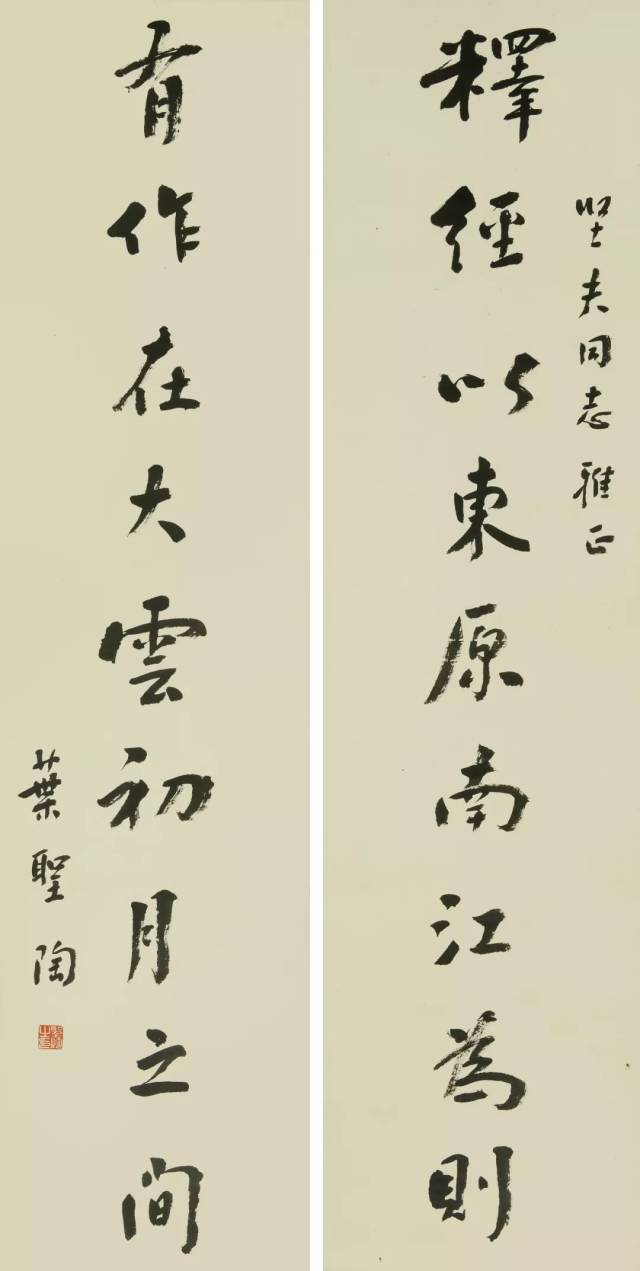 堅夫同志雅正
釋經以東原南江為則
有作在大雲初月之間
葉聖陶